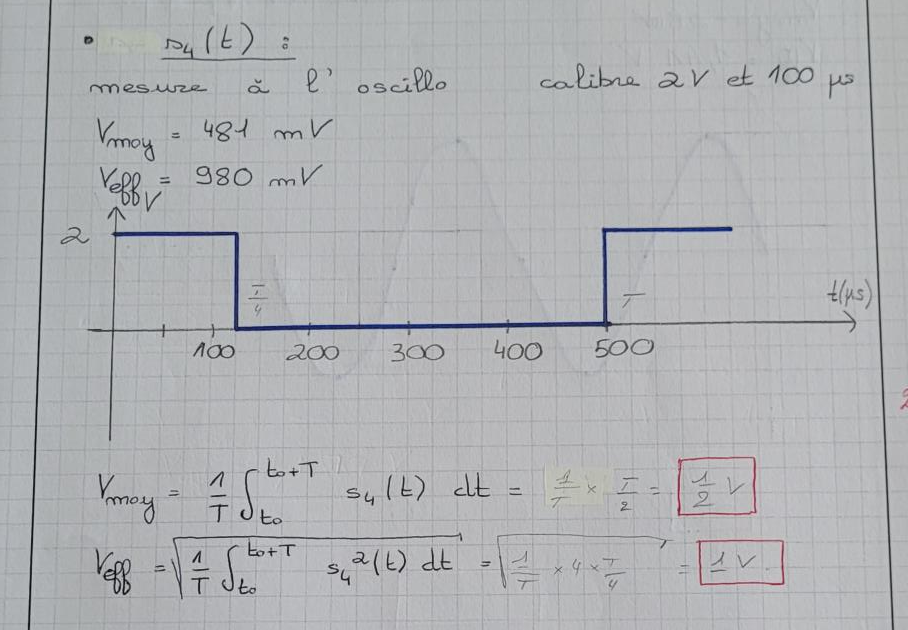 • s₄(t) :
mesure à l' oscillo calibre 2V et 100 μs
Vmoy = 481 mV
Veff = 980 mV
V
2
T/4
T
t(μs)
100 200 300 400 500
Vmoy = 1/T ∫_{t₀}^{t₀+T} s₄(t) dt = 1/T × T/2 = 1/2 V
Veff = √(1/T ∫_{t₀}^{t₀+T} s₄²(t) dt) = √(1/T × 4 × T/4) = 1 V.